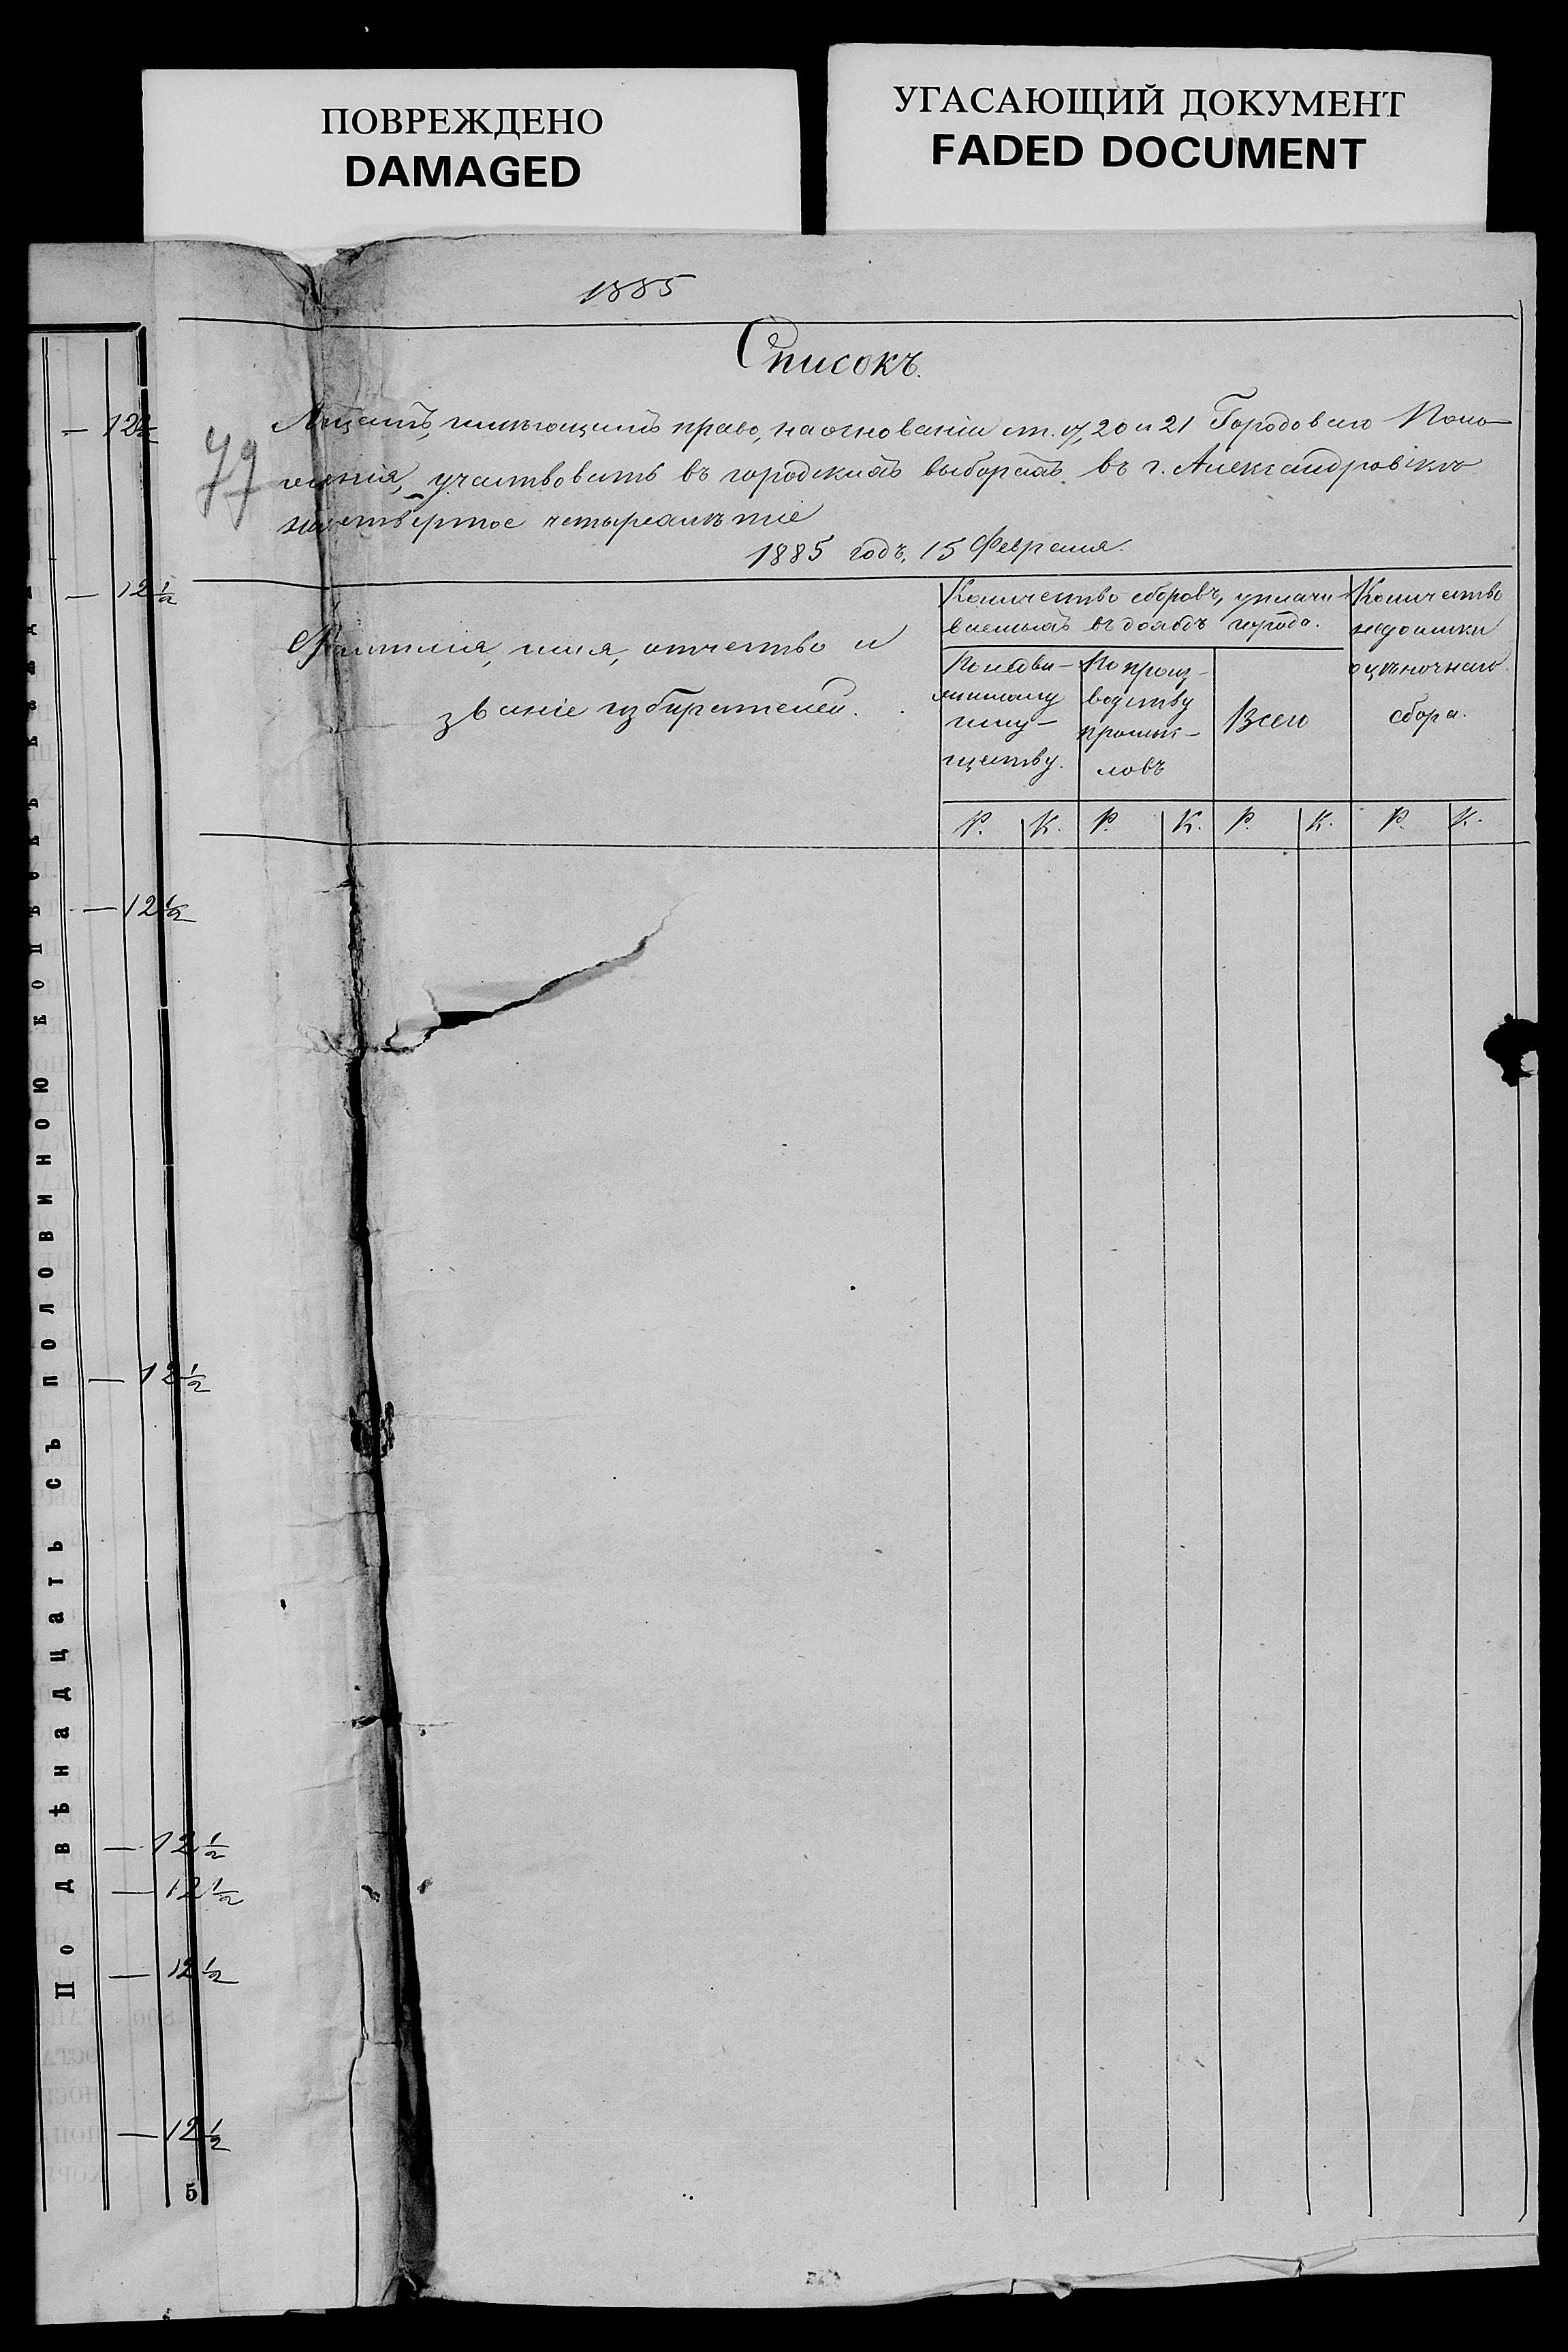 ПОВРЕЖДЕНО
DAMAGED
УГАСАЮЩИЙ ДОКУМЕНТ
FADED DOCUMENT
1885
Списокъ.
79
Лицамъ, имѣющимъ право, на основаніи ст. 17, 20 и 21 Городоваго Поло-
женія, участвовать въ городскихъ выборахъ въ г. Александровскѣ
на четвертое четырехлѣтіе
1885 годъ, 15 Февраля.
Фамилія, имя, отчество и
званіе избирателей.
Количество сборовъ, уплачи-
ваемыхъ въ доходъ города.
По недви-
жимому
иму-
ществу.
По произ-
водству
промыс-
ловъ
Всего
Количество
недоимки
оцѣночнаго
сбора.
Р. К. Р. К. Р. К. Р. К.
— 12½
— 12½
— 12½
— 12½
— 12½
— 12½
— 12½
— 12½
5
По двѣнадцать съ половиною копѣекъ